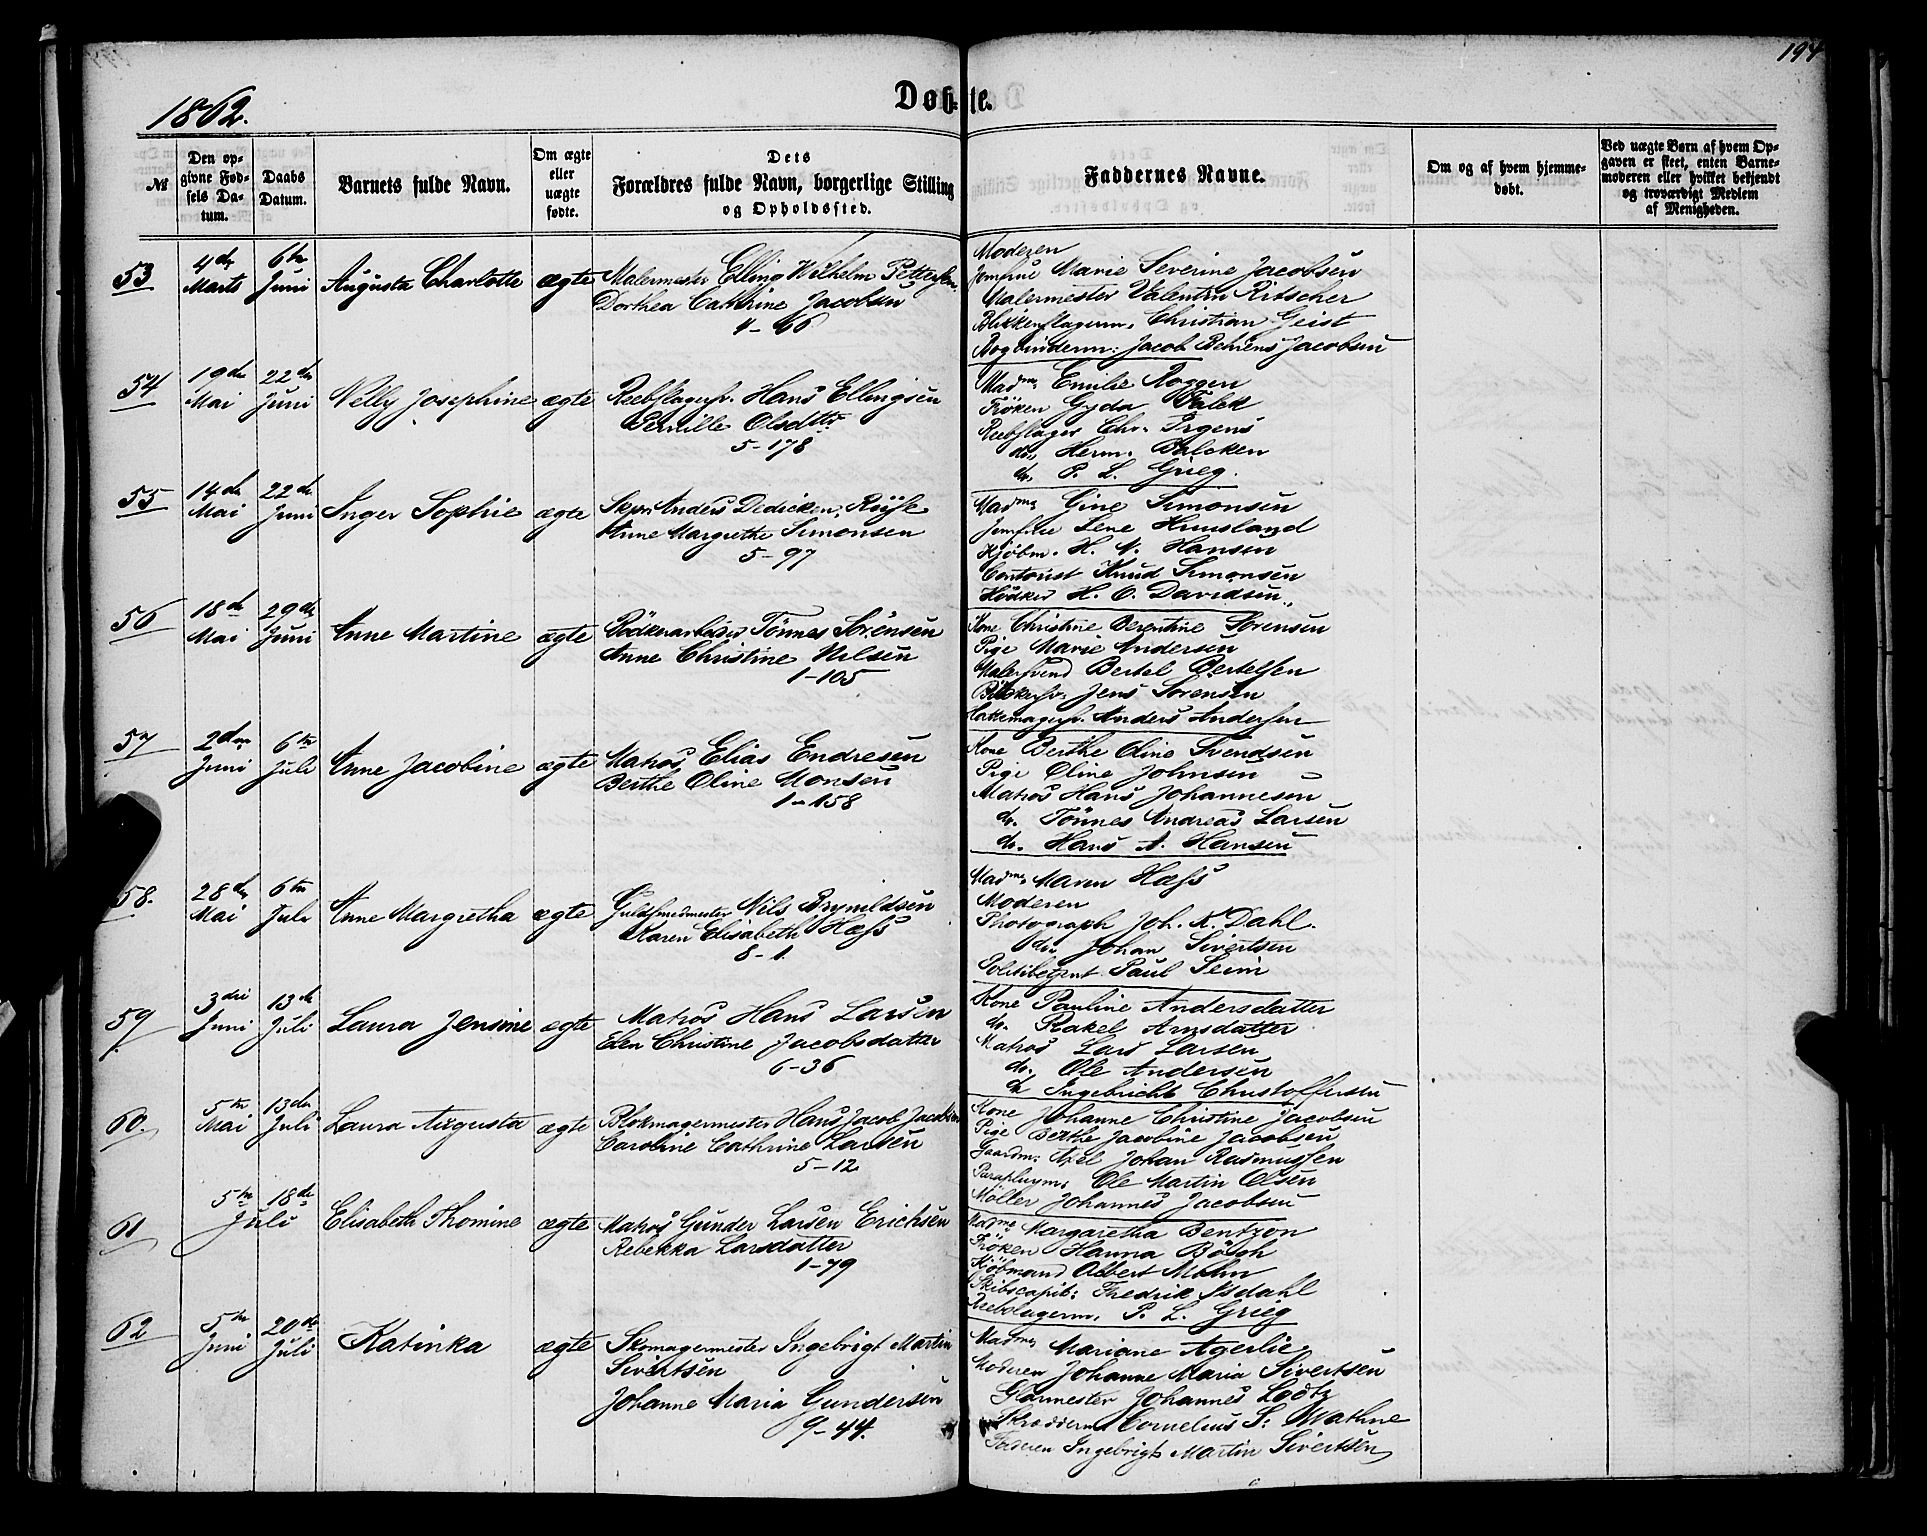 194
1862.
Døbte.
№
Den opgivne Fødsels Datum.
Daabs Datum.
Barnets fulde Navn.
Om ægte eller uægte fødte.
Dets
Forældres fulde Navn, borgerlige Stilling
og Opholdssted.
Faddernes Navne.
Om og af hvem hjemmedøbt.
Ved uægte Børn af hvem Opgaven er skeet, enten Barnemoderen eller hvilket bekjendt og troværdigt Medlem af Menigheden.
53 4de Marts 6te Juni Augusta Charlotte ægte Malermester Elling Wilhelm Pettersen
Dorthea Cathrine Jacobsen
4-66
Moderen
Jomfrue Marie Severine Jacobsen
Malermester Valentin Ritscher
Blikkenslagerm. Christian Geist
Bogbinderm: Jacob Behrens Jacobsen
54 19de Mai 22de Juni Nelly Josephine ægte Reebslagersv. Hans Ellingsen
Pernille Olsdttr
5-178
Madme Emilie Roggen
Frøken Gyda Falck
Reebslager Chr. Irgens
do. Herm. Balcken
do. P. L. Grieg.
55 14de Mai 22de Juni Inger Sophie ægte Skpr. Anders Dedicken Rüyse
Anne Margrethe Simonsen
5-97
Madme Gine Simonsen
Jomfrue Lene Huusland
Kjøbm. H. N. Hansen
Contorist Knud Simonsen
Høker H. O. Davidsen
56 18de Mai 29de Juni Anne Martine ægte Bödkerarbeider Tönnes Sörensen
Anne Christine Nilsen
1-105
Kone Christine Berentine Sörensen
Pige Marie Andersen
Malersvend Bertel Bertelsen
Bökkersv. Jens Sörensen
Hattemagersv. Anders Andersen
57 2den Juni 6te Juli Anne Jacobine ægte Matros Elias Endresen
Berthe Oline Monsen
1-158
Kone Berthe Oline Svendsen
Pige Oline Johnsen
Matros Hans Johannesen
do. Tönnes Andreas Larsen
do. Hans A. Hansen
58. 28de Mai 6te Juli Anne Margretha ægte Guldsmedmester Nils Brynildsen
Karen Elisabeth Hæss
8-1.
Madme Maren Hæss
Moderen
Photograph Joh. K. Dahl.
do. Johan Sivertsen
Politibetjent Paul Seim
59 3die Juni 13de Juli Laura Jensine ægte Matros Hans Larsen
Elen Christine Jacobsdatter
6-36
Kone Pauline Andersdatter
do. Rakel Arnsdatter
Matros Lars Larsen
do. Ole Andersen
do Ingebricht Christoffersen
60. 5te Mai 13de Juli Laura Augusta ægte Blokmagermester Hans Jacob Jacobsen
Caroline Cathrine Larsen
5-12
Kone Johanne Christine Jacobsen
Pige Berthe Jacobine Jacobsen
Gaardm. Axel Johan Rasmussen
Paraplym. Ole Martin Olsen
Möller Johannes Jacobsen
61 5te 18de Juli Elisabeth Thomine ægte Matros Gunder Larsen Erichsen
Rebekka Larsdatter
1-79
Madme Margaretha Bentzon
Frøken Hanna Bösch
Kjöbmand Albert Mohn
Skibscapit: Fredrik Isdahl
Reebslagerm. P. L. Grieg
62 5te Juni 20de Juli Katinka ægte Skomagermester Ingebrigt Martin
Sivertsen
Johanne Maria Gundersen
9-44.
Madme Mariane Agerlie
Moderen Johanne Maria Sivertsen
Glarmester Johannes Lodtz
Skrædderm. Cornelius S: Wathne
Faderen Ingebrigt Martin Sivertsen